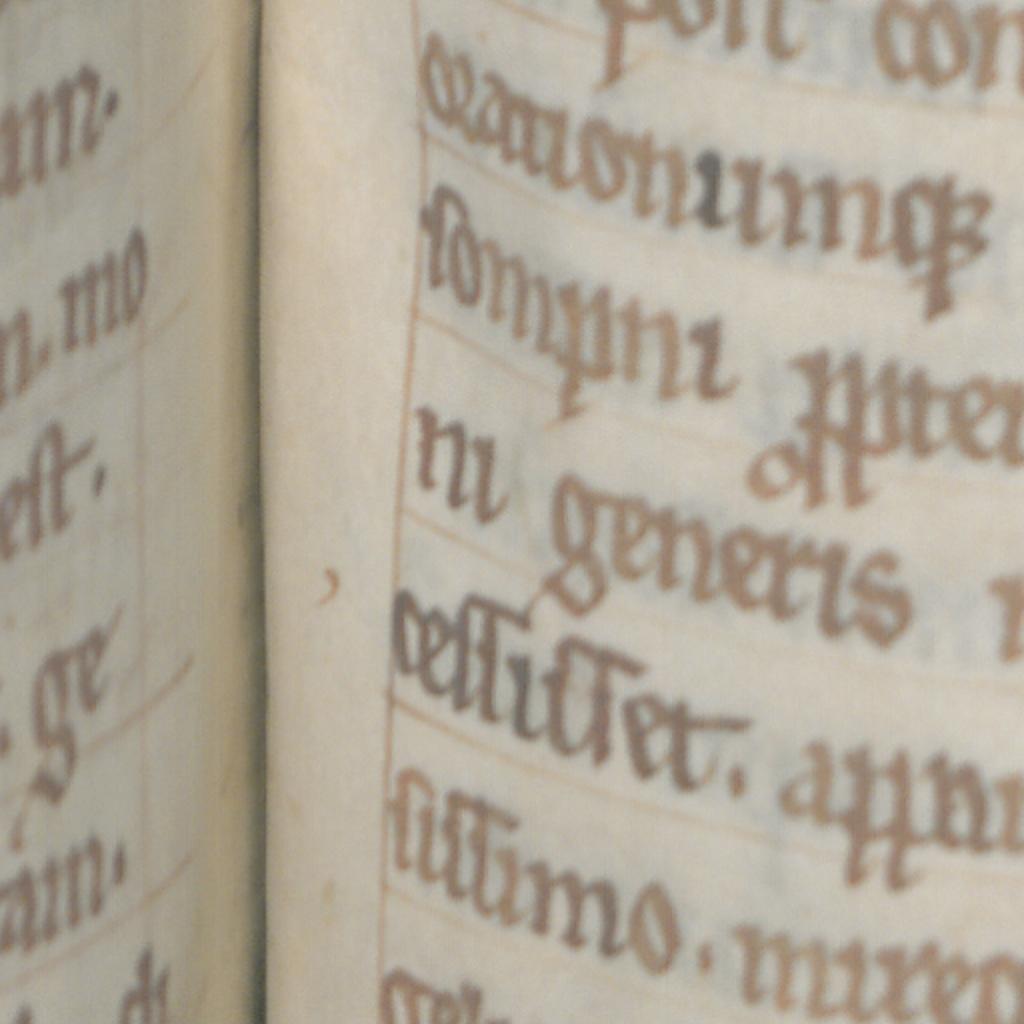 am.
n. mo
est.
. ge
am.
post con
orationumqꝫ
sompni
ni generis
cessisset. appr
sissimo. mireq